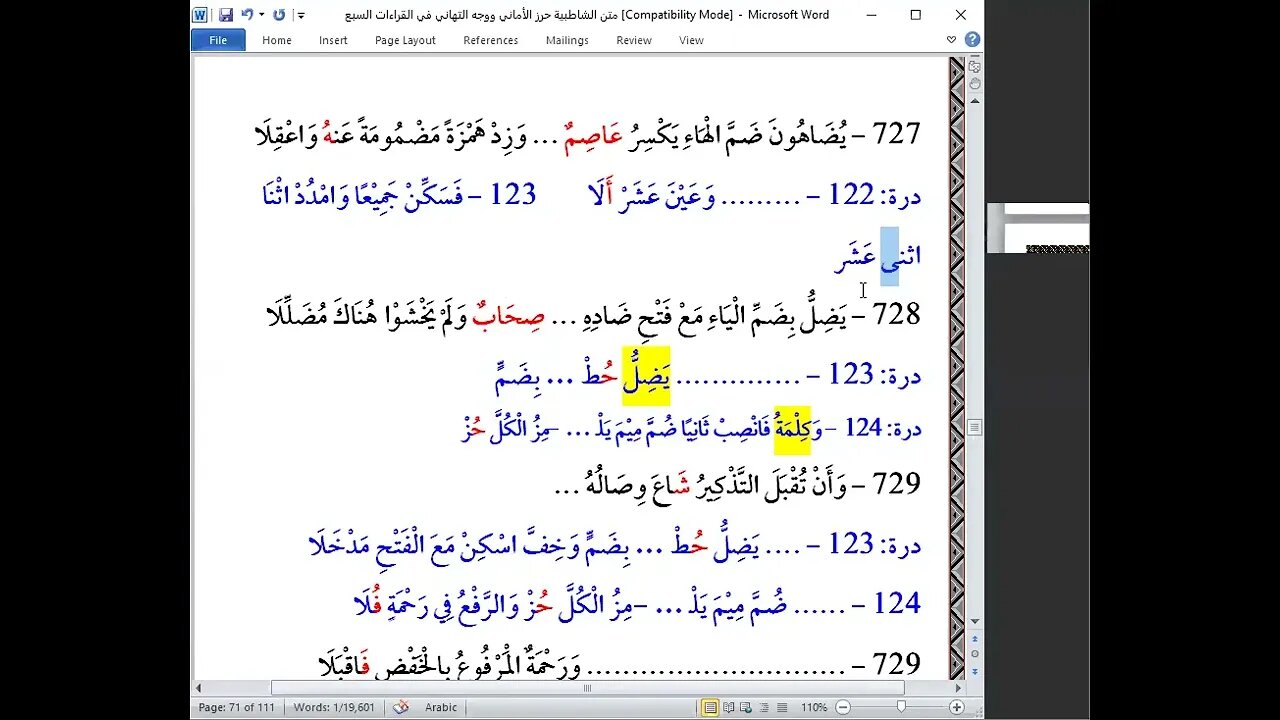 متن الشاطبية حرز الأماني ووجه التهاني في القراءات السبع [Compatibility Mode] - Microsoft Word
File Home Insert Page Layout References Mailings Review View
727 – يُضَاهُونَ ضَمَّ الْهَاءِ يَكْسِرُ عَاصِمٌ ... وَزِدْ هَمْزَةً مَضْمُومَةً عَنهُ وَاعْقِلَا
درة: 122 – ......... وَعَيْنَ عَشَرْ أَلَا 123 – فَسَكِّنْ جَمِيْعًا وَامْدُدْ اثْنَا
اثنى عَشَر
728 – يَضِلُّ بِضَمِّ الْيَاءِ مَعْ فَتْحِ ضَادِهِ ... صِحَابٌ وَلَمْ يَخْشَوْا هُنَاكَ مُضَلِّلَا
درة: 123 – .............. يَضِلُّ حُطْ ... بِضَمٍّ
درة: 124 – وَكِلْمَةُ فَانْصِبْ ثَانِيًا ضُمَّ مِيْمَ يَلْـ ... –مِزُ الْكُلَّ حُزْ
729 – وَأَنْ تُقْبَلَ التَّذْكِيرُ شَاعَ وِصَالُهُ ...
درة: 123 – .... يَضِلُّ حُطْ ... بِضَمٍّ وَخِفَّ اسْكِنْ مَعَ الْفَتْحِ مَدْخَلَا
124 – ...... ضُمَّ مِيْمَ يَلْـ ... –مِزُ الْكُلَّ حُزْ وَالرَّفْعُ فِي رَحْمَةٍ فُلَا
729 – ............................. وَرَحْمَةٌ الْمَرْفُوعُ بِالْخَفْضِ فَاقْبَلَا
Page: 71 of 111 Words: 1/19,601 Arabic 110%